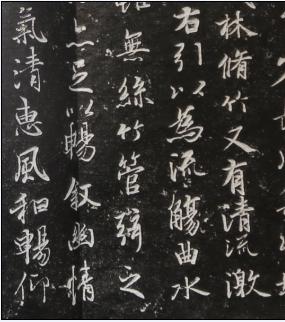 林脩竹又有清流激
右引以為流觴曲水
無絲竹管弦之
亦足以暢敘幽情
氣清惠風和暢仰